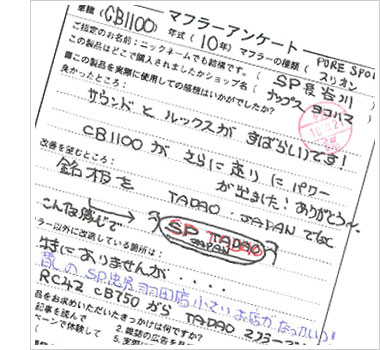 マフラーアンケート
車種 (CB1100) 年式 (10年) マフラーの種類 (PURE SPO
スリオン
ご指定のお名前:ニックネームでも結構です。( SP長谷川
この製品はどこで購入されましたかショップ名( ナップス ヨコハマ
■この製品を実際に使用しての感想はいかがでしたか?
良かったところ:
サウンドとルックスがすばらしいです!
CB1100がさらに走りにパワー
が出ました!ありがとう〜
改善を望むところ:
銘板を TADAO JAPANでなく
こんな感じで SP TADAO
JAPAN
ラー以外に改造している箇所は:
特にありませんが・・・・
昔のSP忠男
お店がなつかしい!
RC42 CB750から TADAO
品をお求めいただいたきっかけは何ですか?
記事を読んで 2.雑誌の広告を見
ーンで体験して 5.実際に